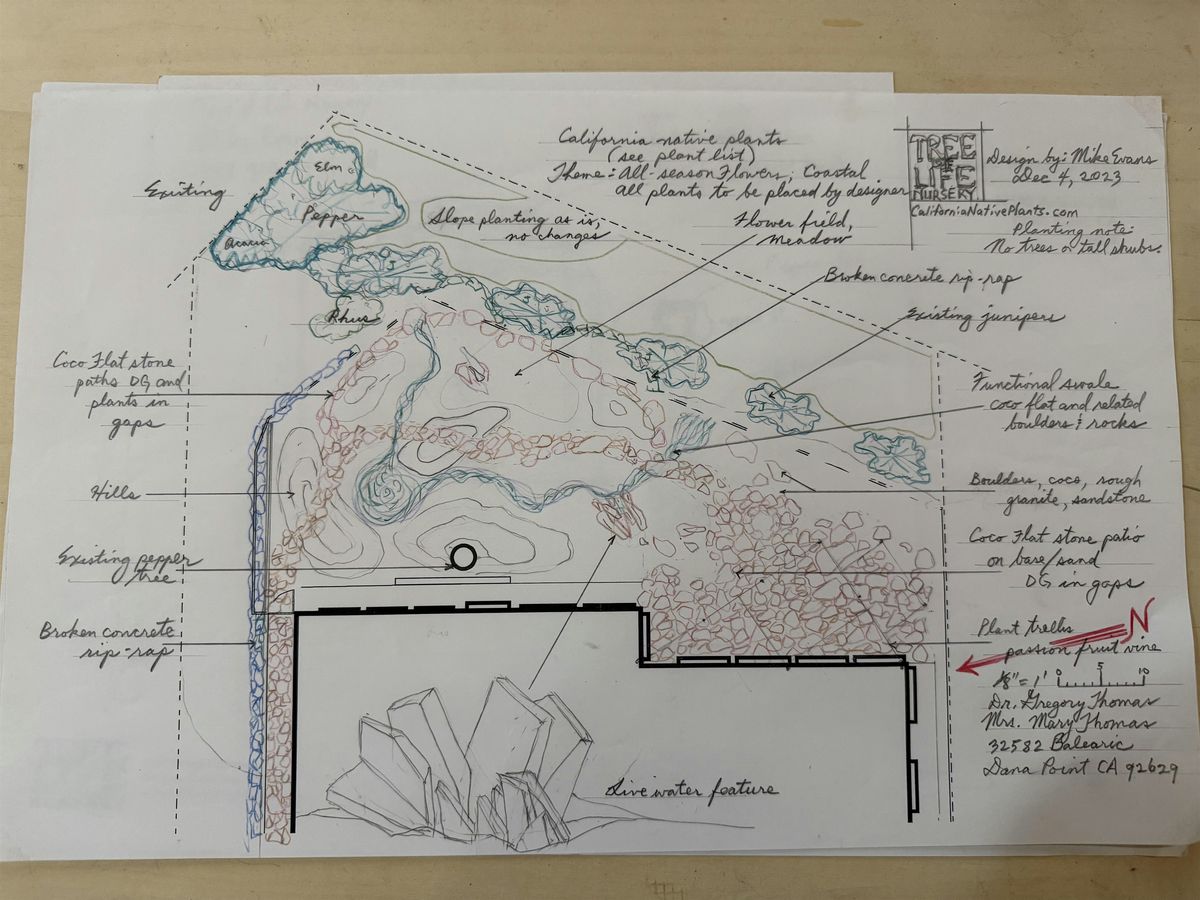 California native plants
(see plant list)
Theme: All-season Flowers, Coastal
all plants to be placed by designer
TREE
of
LIFE
NURSERY
CaliforniaNativePlants.com
Design by: Mike Evans
Dec 4, 2023
Planting note:
No trees or tall shubs.
Existing
Elm
Pepper
Acacia
Rhus
Slope planting as is,
no changes
Flower field,
meadow
Broken concrete rip-rap
Existing junipers
Functional swale
coco flat and related
boulders & rocks
Boulders, coco, rough
granite, sandstone
Coco Flat stone patio
on base/sand
DG in gaps
Plant trellis
passion fruit vine
N
1/8" = 1' 0 5 10
Dr. Gregory Thomas
Mrs. Mary Thomas
32582 Balearic
Dana Point CA 92629
Coco Flat stone
paths DG and
plants in
gaps
Hills
Existing pepper
tree
Broken concrete
rip-rap
Live water feature